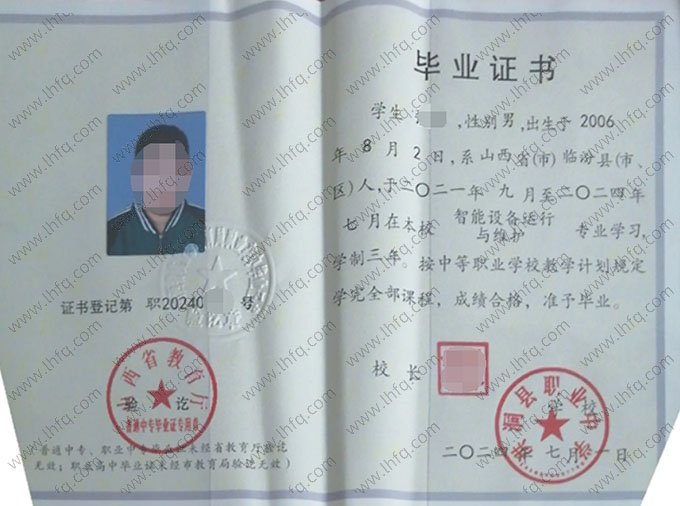 毕业证书
学生 ,性别男,出生于2006
年8月2日,系山西省(市)临汾县(市、
区)人,于二〇二一年九月至二〇二四年
七月在本校 智能设备运行与维护 专业学习,
学制三年。按中等职业学校教学计划规定
学完全部课程,成绩合格,准予毕业。
校长
学校
二〇二四年七月一日
证书登记第 职20240 号
山西省教育厅
验讫
普通中专毕业证专用章
县职业中学
(普通中专、职业中专毕业证未经省教育厅验讫
无效;职业高中毕业证未经市教育局验讫无效)
www.lhfq.com